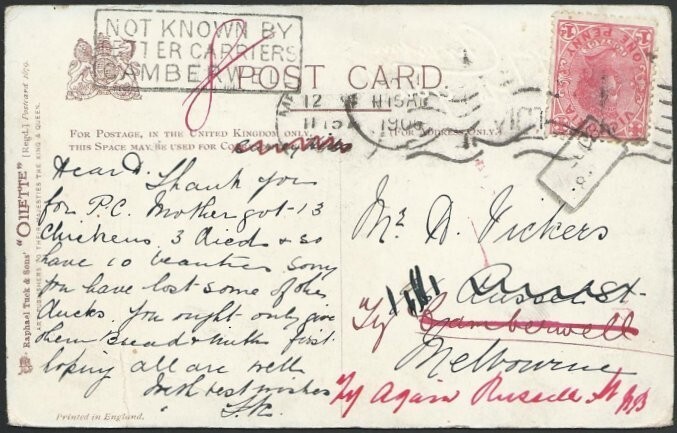 NOT KNOWN BY
LETTER CARRIERS
CAMBERWELL
8
POST CARD.
12
11 15 AM
1906
VICT
VICTORIA
POSTAGE
ONE PENNY
FOR POSTAGE, IN THE UNITED KINGDOM ONLY,
THIS SPACE MAY BE USED FOR
(FOR ADDRESS ONLY.)
Raphael Tuck & Sons' "OILETTE" [Regd.] Postcard
ART PUBLISHERS TO THEIR MAJESTIES THE KING & QUEEN.
Dear D. Thank you
for P.C. Mother got 13
chickens 3 died & so
have 10 beauties sorry
you have lost some of the
ducks. You ought only give
them Bread & milk first
hoping all are well
With best wishes
Mr D. Vickers
Russell St
Try Camberwell
Melbourne
Try Again Russell St
Printed in England.